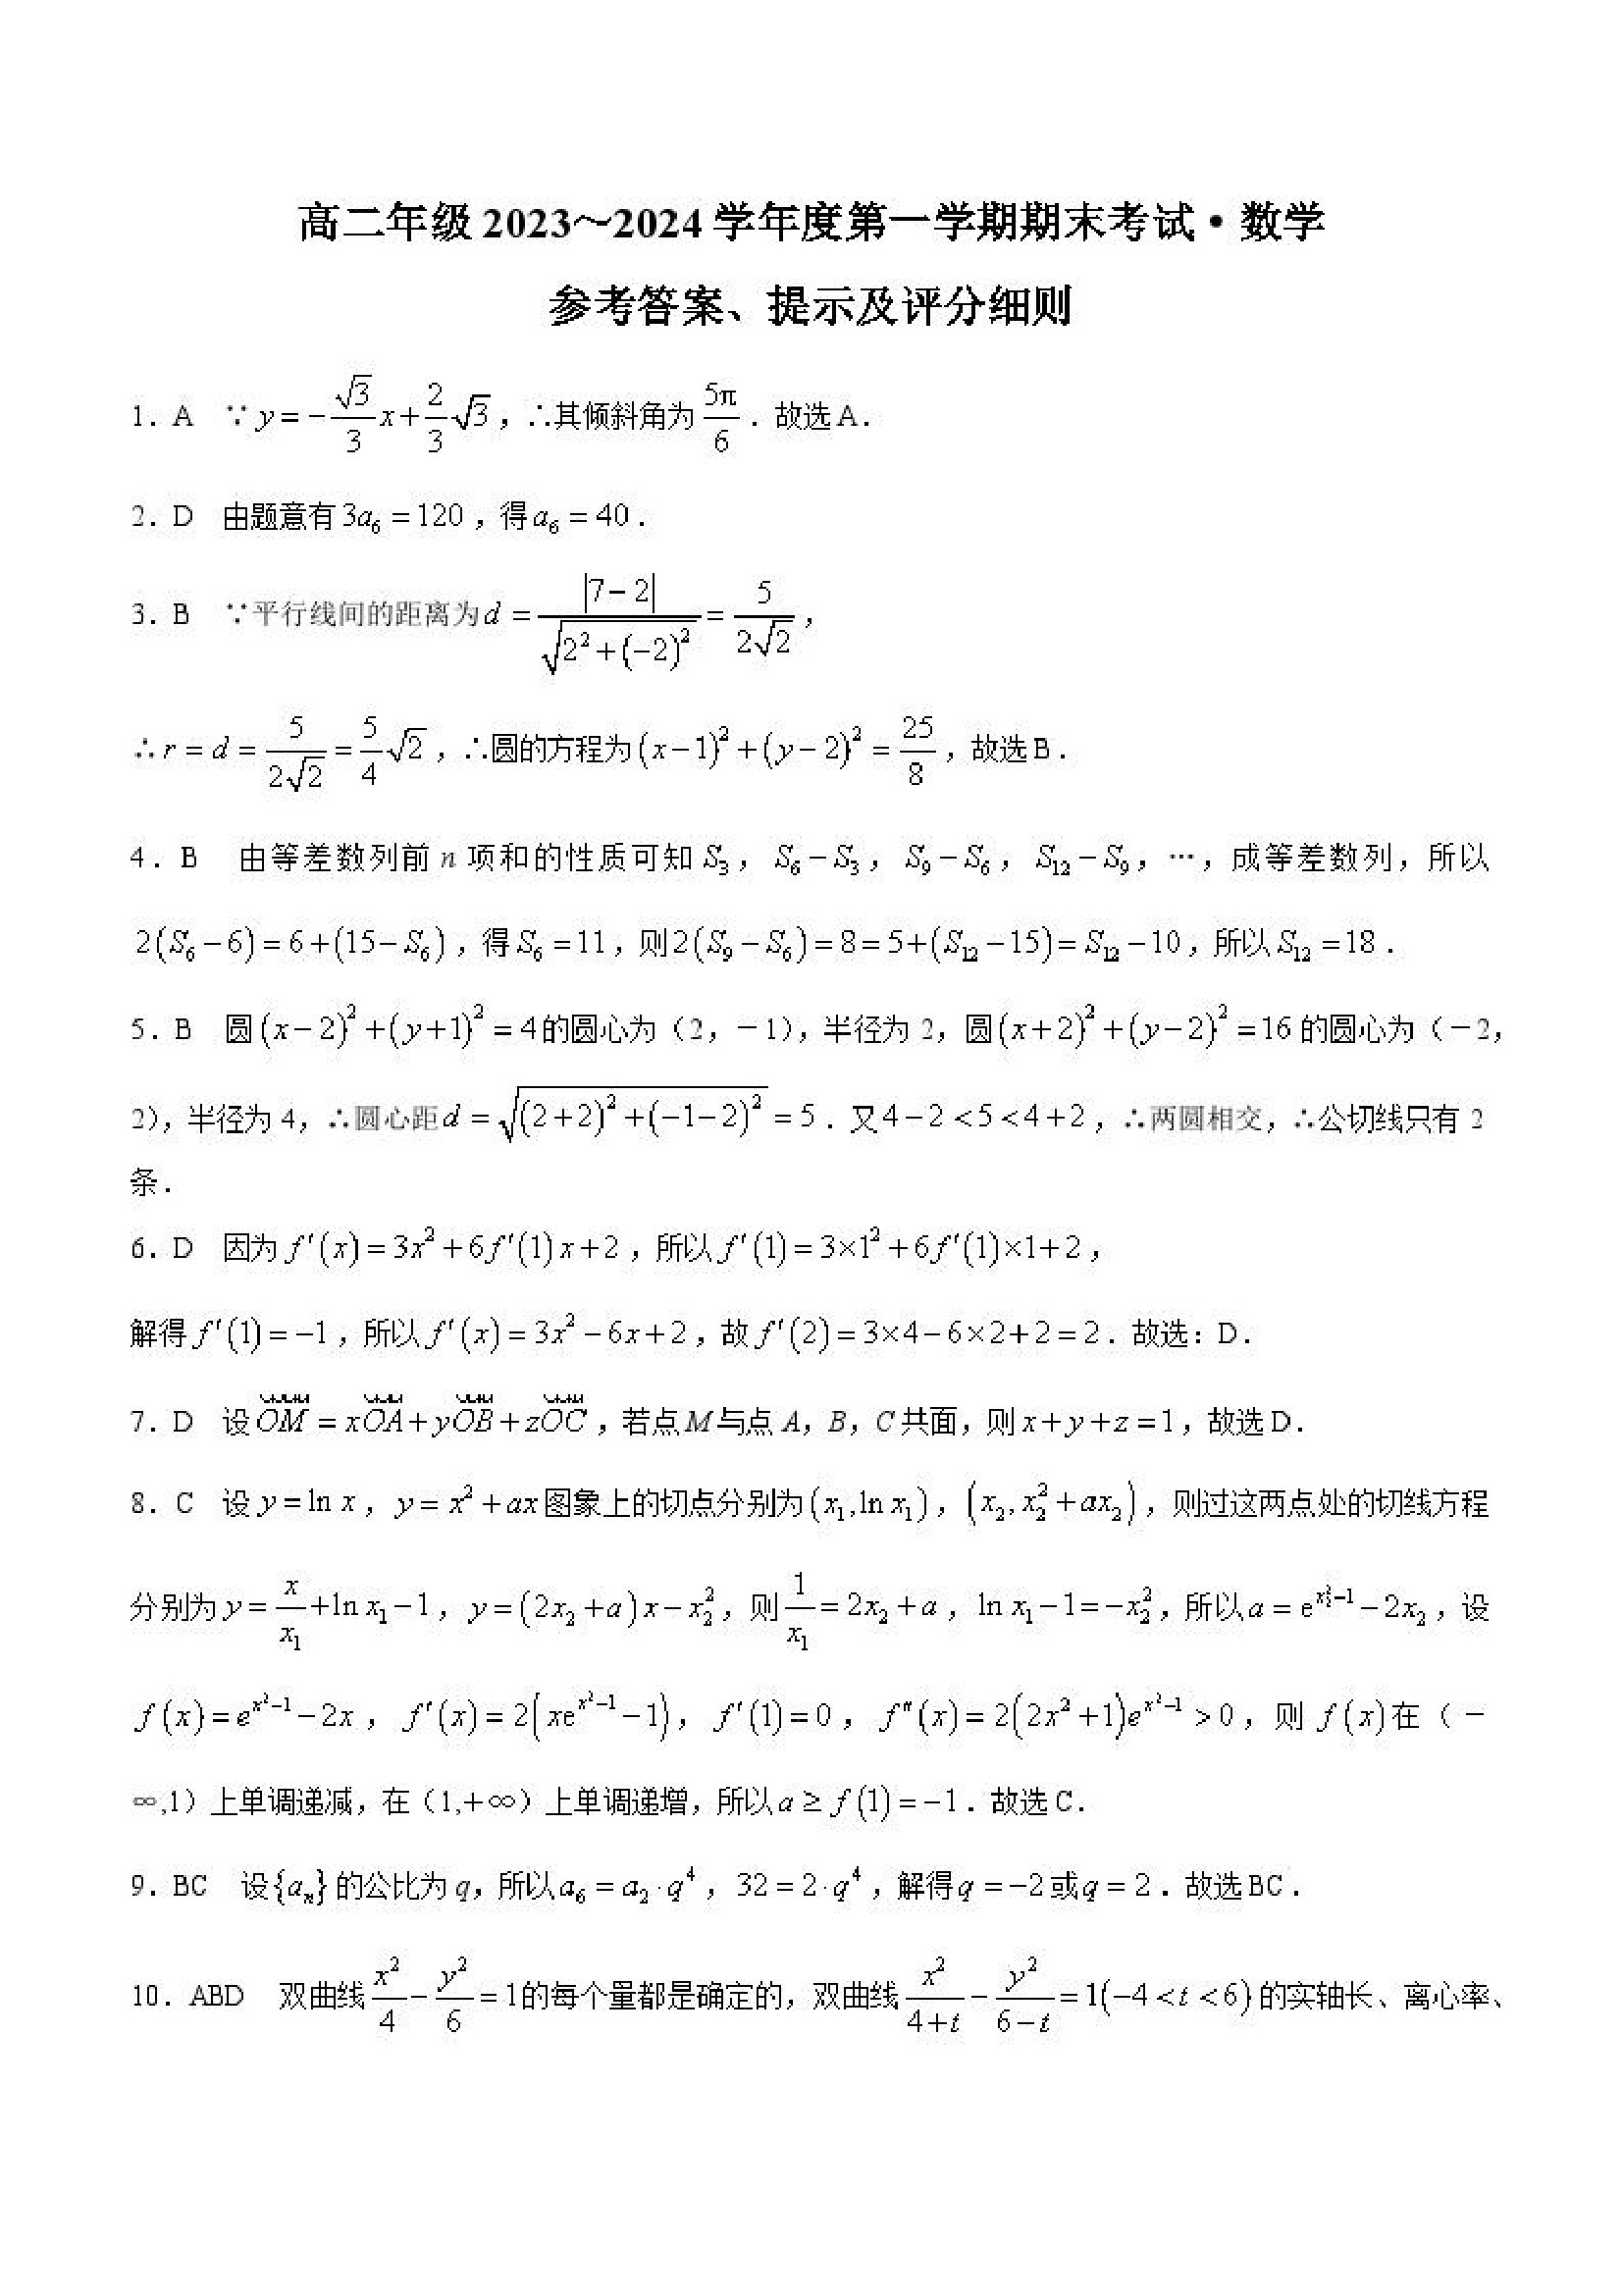 高二年级 2023～2024 学年度第一学期期末考试·数学
参考答案、提示及评分细则
1．A ∵ $y=-\frac{\sqrt{3}}{3}x+\frac{2}{3}\sqrt{3}$，∴其倾斜角为 $\frac{5\pi}{6}$．故选 A．
2．D 由题意有 $3a_6=120$，得 $a_6=40$．
3．B ∵平行线间的距离为 $d=\frac{|7-2|}{\sqrt{2^2+(-2)^2}}=\frac{5}{2\sqrt{2}}$，
∴ $r=d=\frac{5}{2\sqrt{2}}=\frac{5}{4}\sqrt{2}$，∴圆的方程为 $(x-1)^2+(y-2)^2=\frac{25}{8}$，故选 B．
4．B 由等差数列前 n 项和的性质可知 $S_3$，$S_6-S_3$，$S_9-S_6$，$S_{12}-S_9$，…，成等差数列，所以
$2(S_6-6)=6+(15-S_6)$，得 $S_6=11$，则 $2(S_9-S_6)=8=5+(S_{12}-15)=S_{12}-10$，所以 $S_{12}=18$．
5．B 圆 $(x-2)^2+(y+1)^2=4$ 的圆心为（2，－1），半径为 2，圆 $(x+2)^2+(y-2)^2=16$ 的圆心为（－2，
2），半径为 4，∴圆心距 $d=\sqrt{(2+2)^2+(-1-2)^2}=5$．又 $4-2<5<4+2$，∴两圆相交，∴公切线只有 2
条．
6．D 因为 $f'(x)=3x^2+6f'(1)x+2$，所以 $f'(1)=3\times1^2+6f'(1)\times1+2$，
解得 $f'(1)=-1$，所以 $f'(x)=3x^2-6x+2$，故 $f'(2)=3\times4-6\times2+2=2$．故选：D．
7．D 设 $\overrightarrow{OM}=x\overrightarrow{OA}+y\overrightarrow{OB}+z\overrightarrow{OC}$，若点 M 与点 A，B，C 共面，则 $x+y+z=1$，故选 D．
8．C 设 $y=\ln x$，$y=x^2+ax$ 图象上的切点分别为 $(x_1,\ln x_1)$，$(x_2,x_2^2+ax_2)$，则过这两点处的切线方程
分别为 $y=\frac{x}{x_1}+\ln x_1-1$，$y=(2x_2+a)x-x_2^2$，则 $\frac{1}{x_1}=2x_2+a$，$\ln x_1-1=-x_2^2$，所以 $a=e^{x_2^2-1}-2x_2$，设
$f(x)=e^{x^2-1}-2x$，$f'(x)=2(xe^{x^2-1}-1)$，$f'(1)=0$，$f''(x)=2(2x^2+1)e^{x^2-1}>0$，则 $f(x)$ 在（－
∞,1）上单调递减，在（1,+∞）上单调递增，所以 $a\geq f(1)=-1$．故选 C．
9．BC 设 $\{a_n\}$ 的公比为 q，所以 $a_6=a_2\cdot q^4$，$32=2\cdot q^4$，解得 $q=-2$ 或 $q=2$．故选 BC．
10．ABD 双曲线 $\frac{x^2}{4}-\frac{y^2}{6}=1$ 的每个量都是确定的，双曲线 $\frac{x^2}{4+t}-\frac{y^2}{6-t}=1(-4<t<6)$ 的实轴长、离心率、